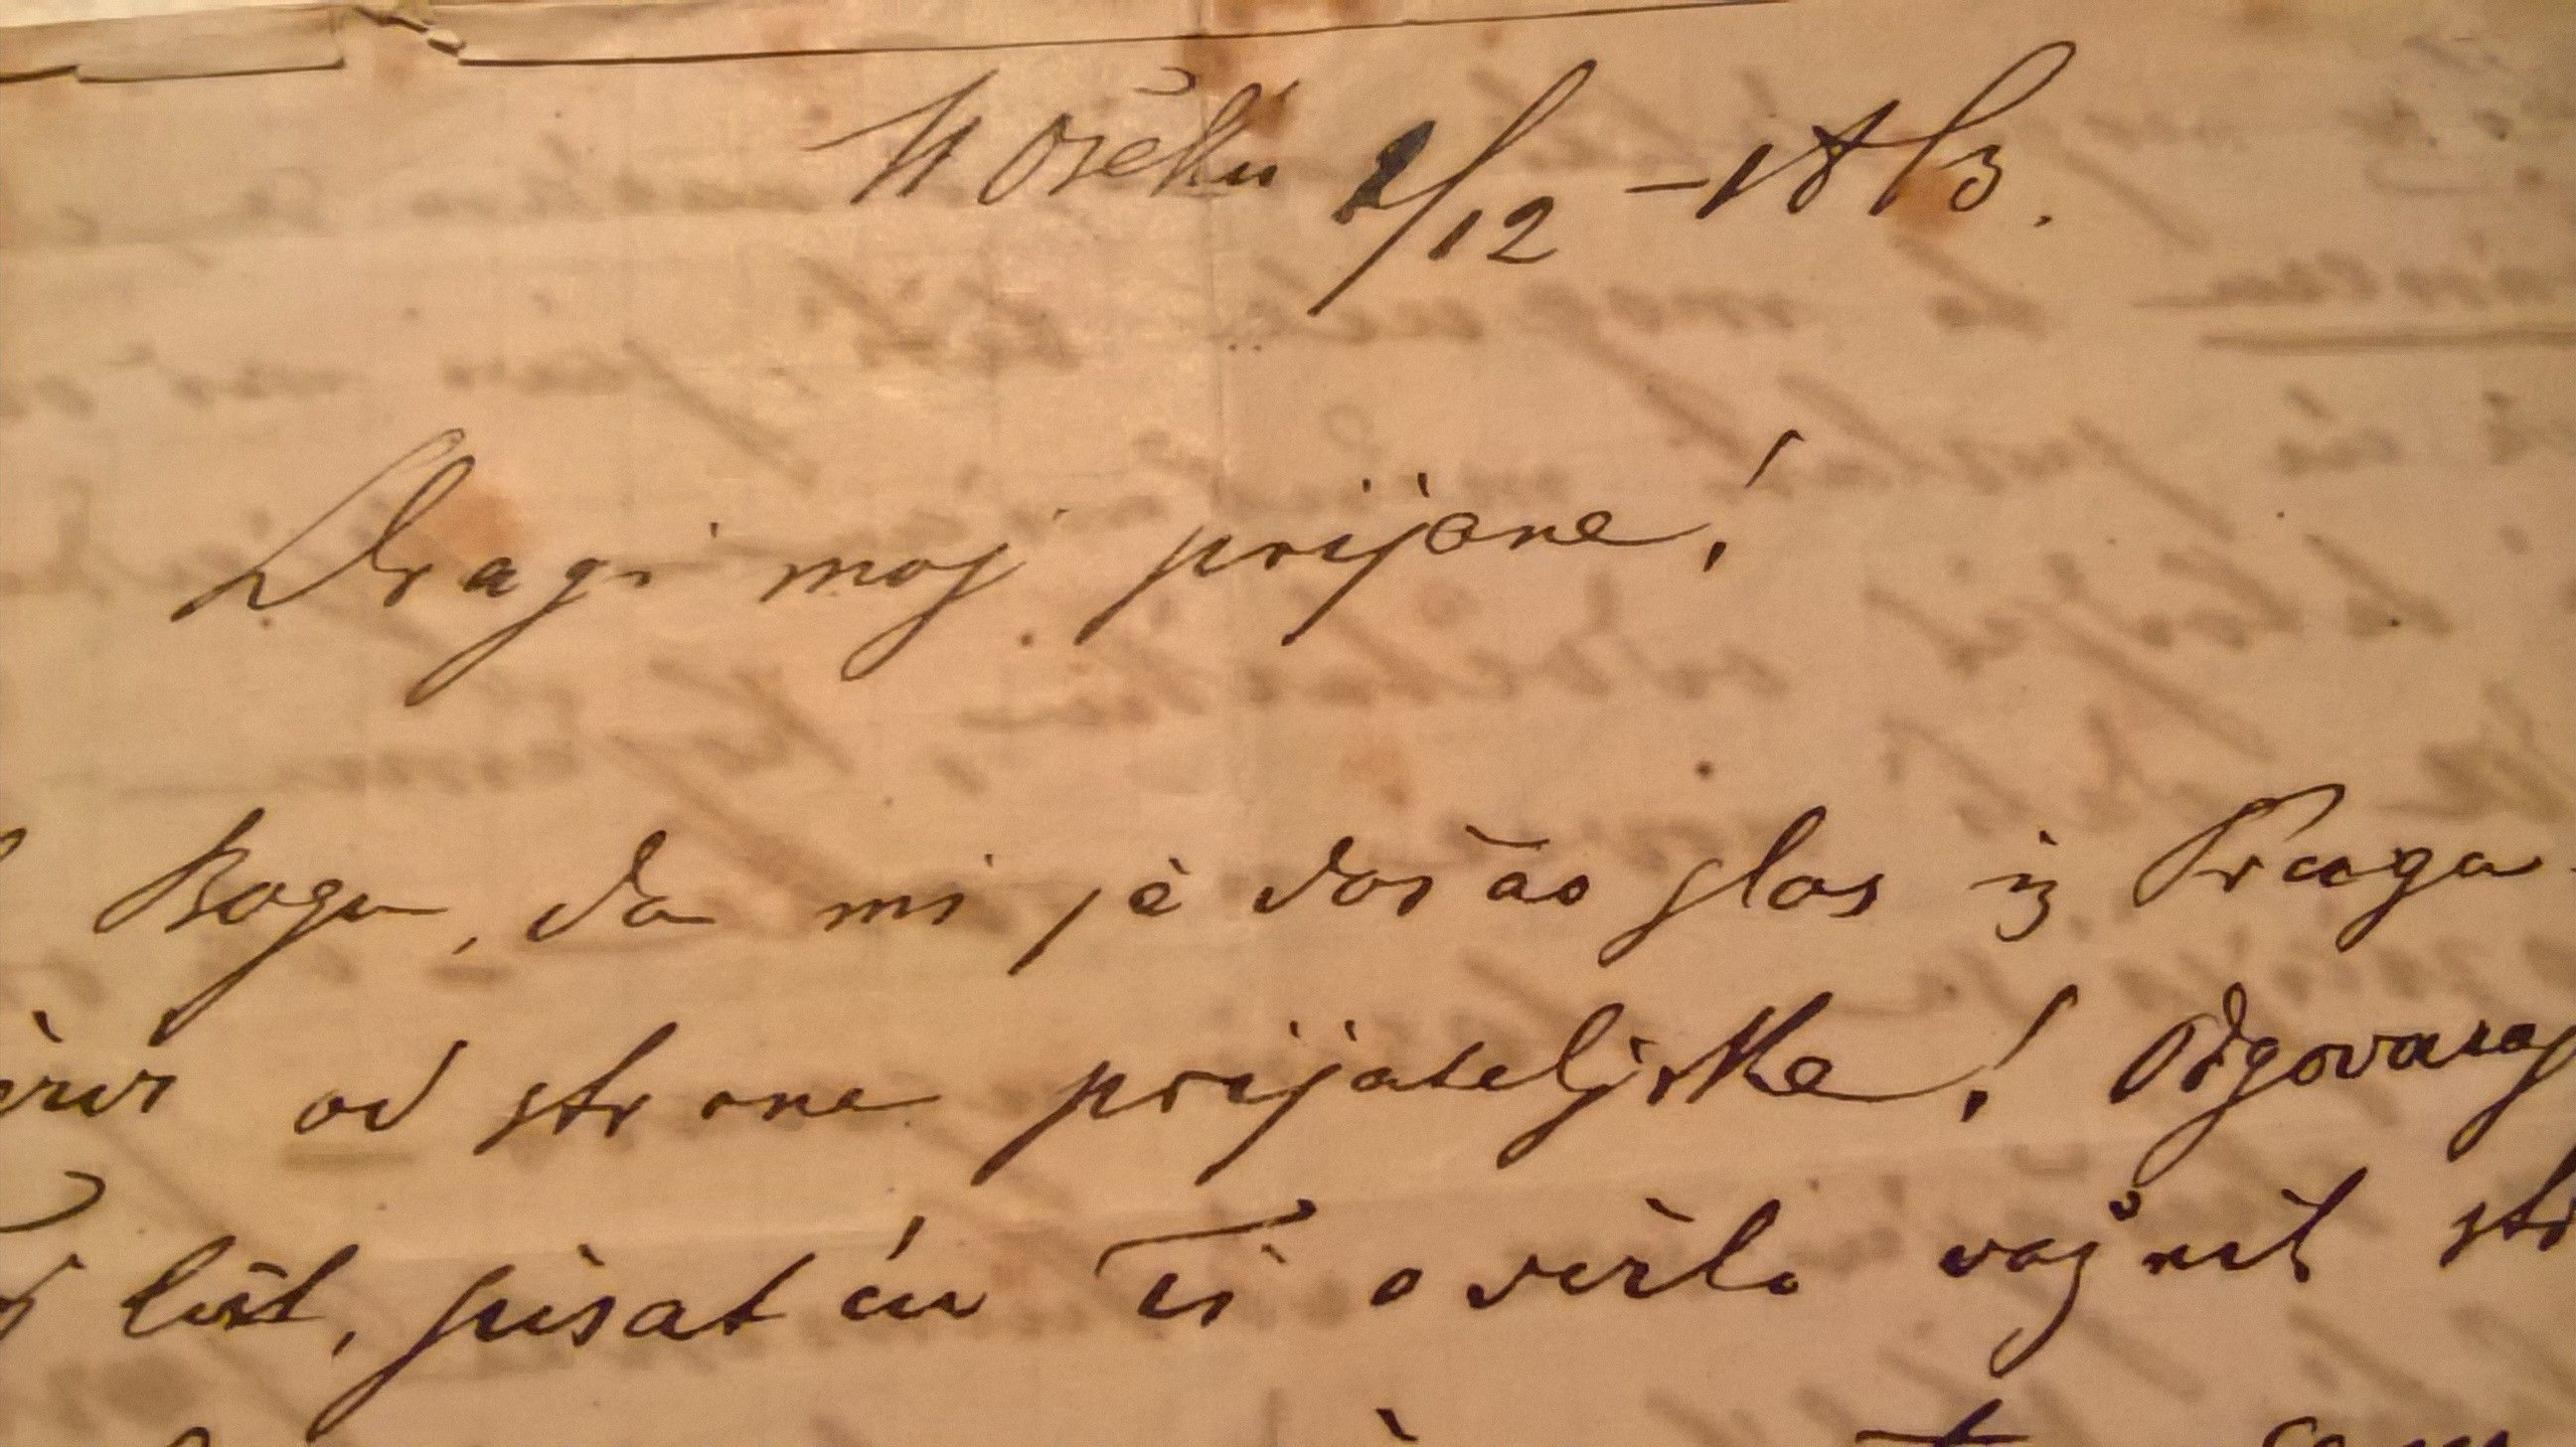 U Osěku 2/12 – 1873.
Dragi moj prijane!
Bogu, da mi jè došao glas iz Praga
od strane prijateljske! Odgovaraj
list, pisat ću Ti o više važnih